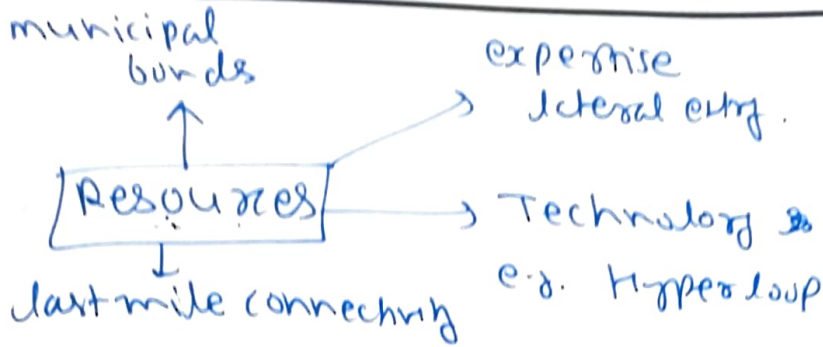 municipal
bonds
expertise
lateral entry.
Resources
Technology
e.g. Hyperloop
last mile connectivity